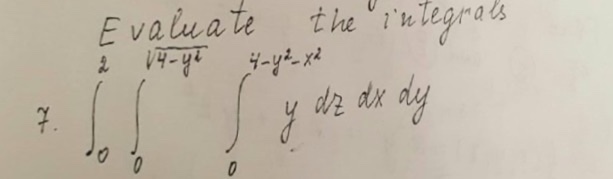 Evaluate the integrals
7. ∫₀² ∫₀^√(4-y²) ∫₀^(4-y²-x²) y dz dx dy